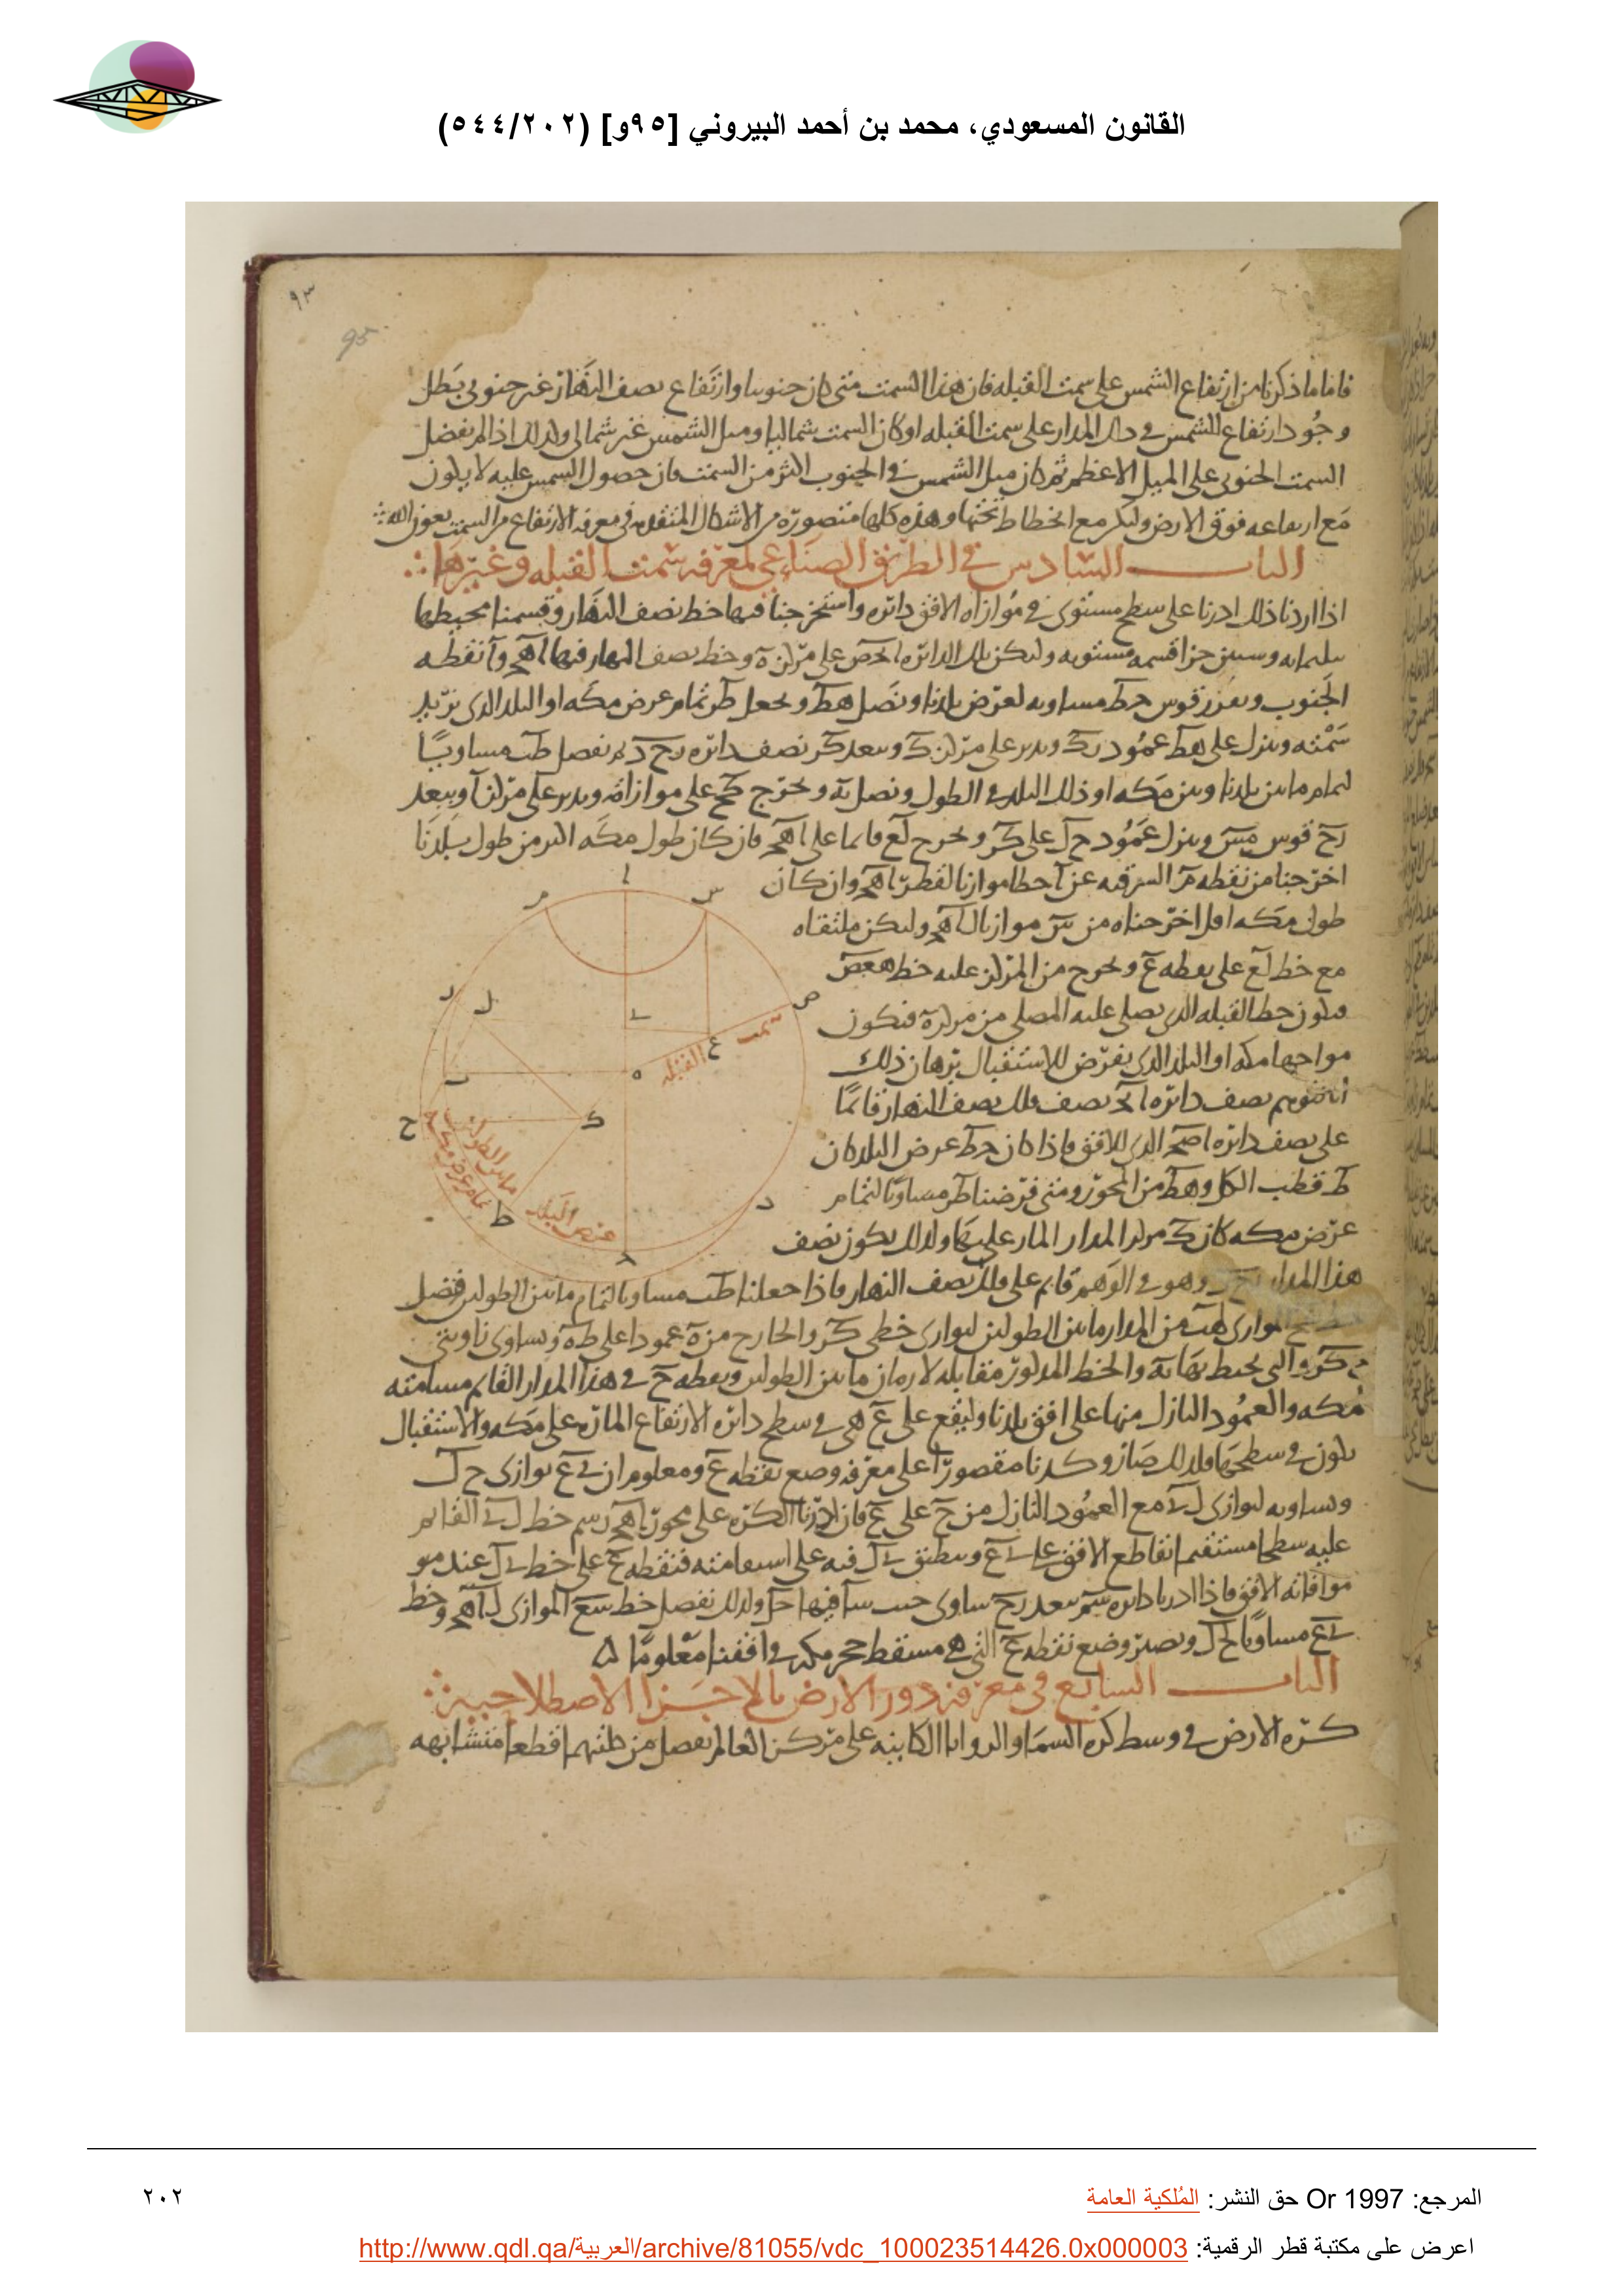 القانون المسعودي، محمد بن أحمد البيروني [٩٥و] (٥٤٤/٢٠٢)
٩٣
95
فاما ما ذكرنا من ارتفاع الشمس على سمت القبله فان هذا السمت متى كان جنوبيا وارتفاع نصف النهار غير جنوبى بطل
وجود ارتفاع الشمس فى ذلك المدار على سمت القبله او كان السمت شماليا وميل الشمس غير شمالى ولذلك اذا لم يفضل
السمت الجنوبى على الميل الاعظم ثم كان ميل الشمس فى الجنوب اكثر من السمت فان حصول الشمس عليه لا يكون
مع ارتفاعه فوق الارض ولكن مع انحطاط تحتها وهذه كلها متصورة من الاشكال المتقدمه فى معرفه الارتفاع من السمت بعون الله
الباب السادس في الطريق الصناعي لمعرفه سمت القبله وغيرها
اذا اردنا ذلك ادرنا على سطح مستوى فى موازاه الافق دائره واستخرجنا فيها خط نصف النهار وقسمنا محيطها
بثلثمايه وستين جزا قسمه مستويه ولتكن تلك الدائره اححص على مركز ه وخط نصف النهار فيها اهح و ا نقطه
الجنوب ونفرز قوس حط مساويه لعرض بلدنا ونصل هط ونجعل طر تمام عرض مكه او البلد الذى نريد
سمته وننزل على هط عمود رك وندير على مركز ك وببعد كر نصف دائره رح د ثم نفصل طب مساويا
لتمام ما بين بلدنا وبين مكه او ذلك البلد فى الطول ونصل به ونخرج كح على موازاته وندير على مركز ا وببعد
رح قوس مس وننزل عمود ح ل على كر ونخرج لع قائما على اهح فان كان طول مكه اكثر من طول بلدنا
اخرجنا من نقطه م الشرقيه عن ا خطا موازيا لقطر اهح وان كان
طول مكه اقل اخرجناه من س موازيا لاهح وليكن ملتقاه
مع خط لع على نقطه ع ونخرج من المركز عليه خط هعص
فيكون خط القبله الذى يصلى عليه المصلى من مركز ه فيكون
مواجها مكه او البلد الذى يفرض للاستقبال برهان ذلك
انا نتوهم نصف دائره نصف فلك نصف النهار قائما
على نصف دائره اصح الذى للافق فاذا كان حط عرض البلد كان
ط قطب الكل وهط من المحور ومتى فرضنا طر مساويا لتمام
عرض مكه كان ك مركز المدار المار عليها ولذلك يكون نصف
هذا المدار وهو فى الوهم قائم على فلك نصف النهار فاذا جعلنا طب مساويا لتمام ما بين الطولين فصل
من المدار ما بين الطولين لتوازى خطى كر والخارج من ه عمودا على طه وتساوى زاويتى
والخط المدكور مقابله لازمان ما بين الطولين ونقطه ح فى هذا المدار القائم مسامته
مكه والعمود النازل منها على افق بلدنا وليقع على ع هى فى سطح دائره الارتفاع الماره على مكه والاستقبال
يكون فى سطحها ولذلك صار وكدنا مقصورا على معرفه وضع نقطه ع ومعلوم ان ى ع يوازى ح ل
ويساويه لتوازى ل ى مع العمود النازل من ح على ع فان ادرنا الكره على محور اهح رسم خط ل ى القائم
عليه سطحا مستقيما قاطع الافق على ى ع وينطبق ى ل فيه على استقامته فنقطه ع على خط ى ل عند
موافاته الافق فاذا ادرنا دائره سم ببعد رح ساوى جيب سا فيها حل ولذلك نفصل خط سع الموازى لاهح وخط
ى ع مساويا لحل ونصير وضع نقطه ع التى هى مسقط حجر مكه فى افقنا معلوما
الباب السابع في معرفة دور الارض بالاجزا الاصطلاحيه
كره الارض فى وسط كره السما والزوايا الكاينه على مركز العالم تفصل من كلتيهما قطعا متشابهه
سمت القبله
ما بين الطولين
تمام عرض مكه
عرض البلد
المرجع: Or 1997 حق النشر: المُلكية العامة
٢٠٢
اعرض على مكتبة قطر الرقمية: http://www.qdl.qa/العربية/archive/81055/vdc_100023514426.0x000003